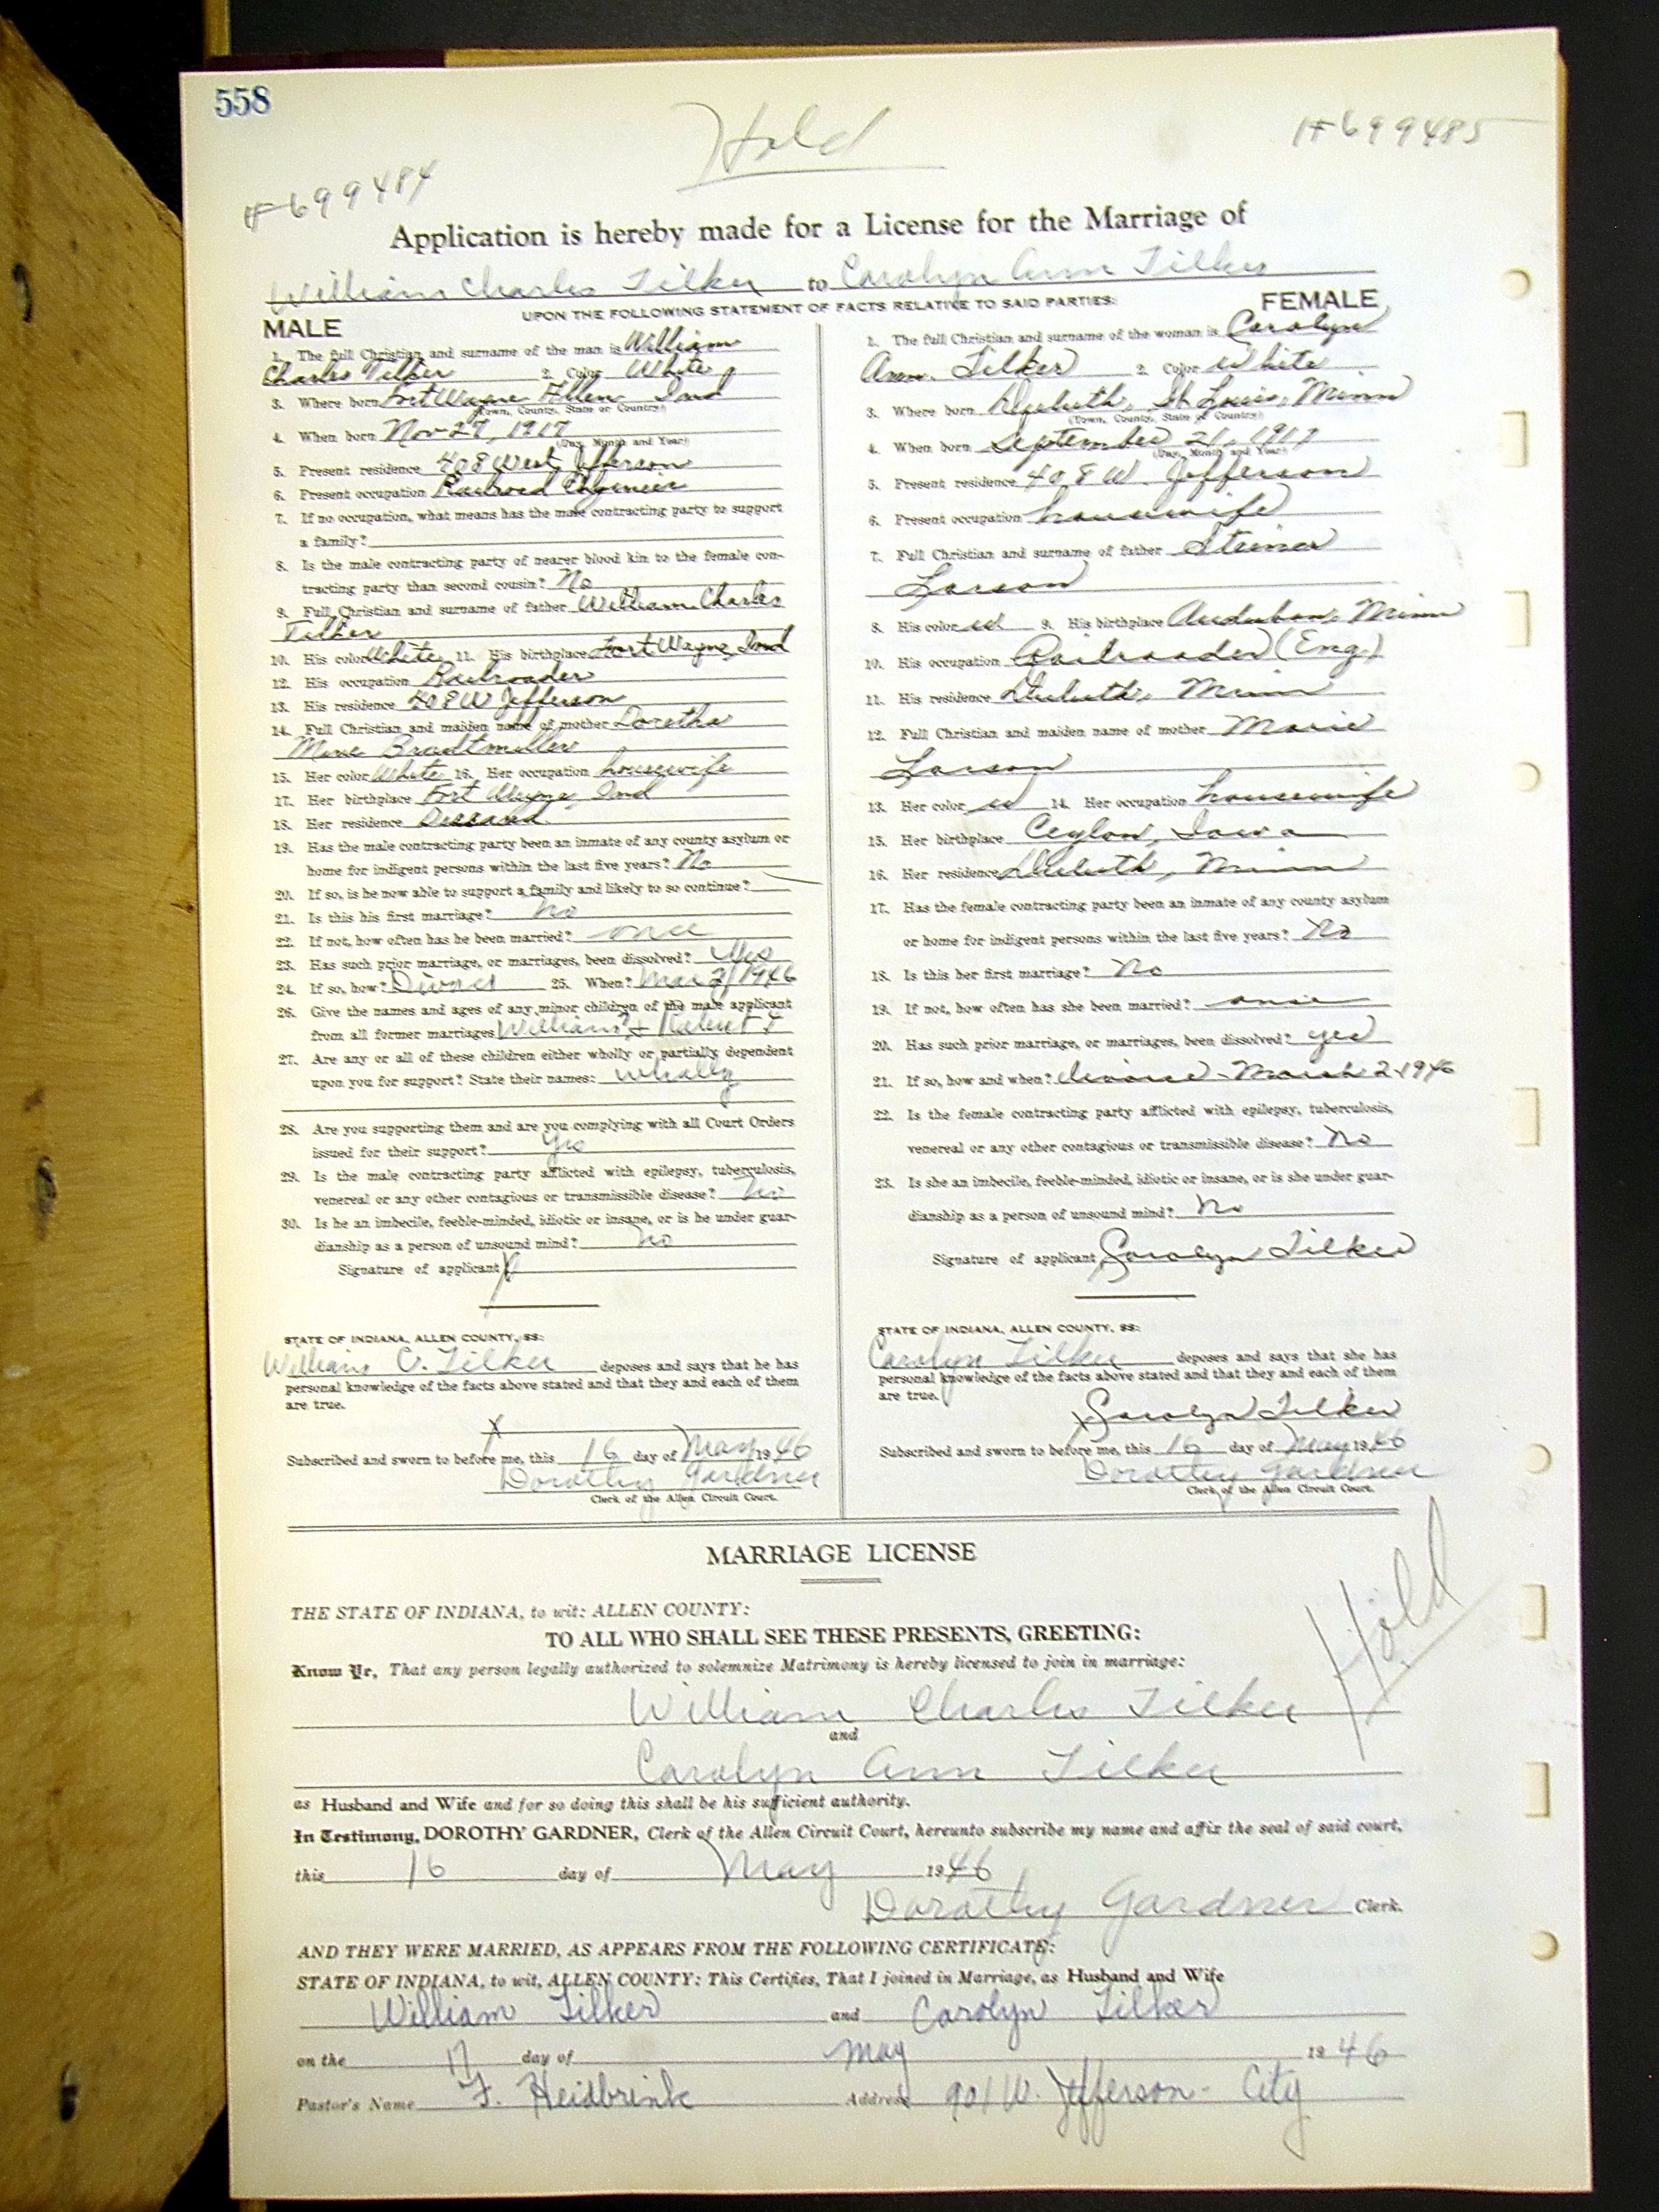 558
Hold
#699485
#699484
Application is hereby made for a License for the Marriage of
William Charles Tilker to Carolyn Ann Tilker
UPON THE FOLLOWING STATEMENT OF FACTS RELATIVE TO SAID PARTIES:
MALE
1. The full Christian and surname of the man is William
Charles Tilker 2. Color White
3. Where born Fort Wayne Allen Ind
(Town, County, State or Country)
4. When born Nov 27, 1917
(Day, Month and Year)
5. Present residence 408 West Jefferson
6. Present occupation Railroad Engineer
7. If no occupation, what means has the male contracting party to support
a family?
8. Is the male contracting party of nearer blood kin to the female con-
tracting party than second cousin? No
9. Full Christian and surname of father William Charles
Tilker
10. His color White 11. His birthplace Fort Wayne, Ind
12. His occupation Railroader
13. His residence 408 W Jefferson
14. Full Christian and maiden name of mother Doretha
Bradtmiller
15. Her color White 16. Her occupation housewife
17. Her birthplace Fort Wayne, Ind
18. Her residence
19. Has the male contracting party been an inmate of any county asylum or
home for indigent persons within the last five years? No
20. If so, is he now able to support a family and likely to so continue?
21. Is this his first marriage? No
22. If not, how often has he been married? once
23. Has such prior marriage, or marriages, been dissolved? Yes
24. If so, how? Divorce 25. When? Mar 2, 1946
26. Give the names and ages of any minor children of the male applicant
from all former marriages William &
27. Are any or all of these children either wholly or partially dependent
upon you for support? State their names: wholly
28. Are you supporting them and are you complying with all Court Orders
issued for their support? Yes
29. Is the male contracting party afflicted with epilepsy, tuberculosis,
venereal or any other contagious or transmissible disease? No
30. Is he an imbecile, feeble-minded, idiotic or insane, or is he under guar-
dianship as a person of unsound mind? No
Signature of applicant
STATE OF INDIANA, ALLEN COUNTY, SS:
William C. Tilker deposes and says that he has
personal knowledge of the facts above stated and that they and each of them
are true.
X
Subscribed and sworn to before me, this 16 day of May 1946
Dorothy Gardner
Clerk of the Allen Circuit Court.
FEMALE
1. The full Christian and surname of the woman is Carolyn
Ann Tilker 2. Color White
3. Where born Duluth, St Louis, Minn
(Town, County, State or Country)
4. When born September 21, 1917
(Day, Month and Year)
5. Present residence 408 W. Jefferson
6. Present occupation housewife
7. Full Christian and surname of father Steiner
Larson
8. His color W 9. His birthplace Audubon, Minn
10. His occupation Railroader (Eng.)
11. His residence Duluth, Minn
12. Full Christian and maiden name of mother Marie
Larson
13. Her color W 14. Her occupation housewife
15. Her birthplace Ceylon, Iowa
16. Her residence Duluth, Minn
17. Has the female contracting party been an inmate of any county asylum
or home for indigent persons within the last five years? No
18. Is this her first marriage? No
19. If not, how often has she been married? once
20. Has such prior marriage, or marriages, been dissolved? yes
21. If so, how and when? divorce - March 2 - 1946
22. Is the female contracting party afflicted with epilepsy, tuberculosis,
venereal or any other contagious or transmissible disease? No
23. Is she an imbecile, feeble-minded, idiotic or insane, or is she under guar-
dianship as a person of unsound mind? No
Signature of applicant Carolyn Tilker
STATE OF INDIANA, ALLEN COUNTY, SS:
Carolyn Tilker deposes and says that she has
personal knowledge of the facts above stated and that they and each of them
are true.
X Carolyn Tilker
Subscribed and sworn to before me, this 16 day of May 1946
Dorothy Gardner
Clerk of the Allen Circuit Court.
MARRIAGE LICENSE
Hold
THE STATE OF INDIANA, to wit: ALLEN COUNTY:
TO ALL WHO SHALL SEE THESE PRESENTS, GREETING:
Know Ye, That any person legally authorized to solemnize Matrimony is hereby licensed to join in marriage:
William Charles Tilker
and
Carolyn Ann Tilker
as Husband and Wife and for so doing this shall be his sufficient authority.
In Testimony, DOROTHY GARDNER, Clerk of the Allen Circuit Court, hereunto subscribe my name and affix the seal of said court,
this 16 day of May 1946
Dorothy Gardner Clerk.
AND THEY WERE MARRIED, AS APPEARS FROM THE FOLLOWING CERTIFICATE:
STATE OF INDIANA, to wit, ALLEN COUNTY: This Certifies, That I joined in Marriage, as Husband and Wife
William Tilker and Carolyn Tilker
on the 17 day of May 1946
Pastor's Name F. Heidbrink Address 901 W. Jefferson - City